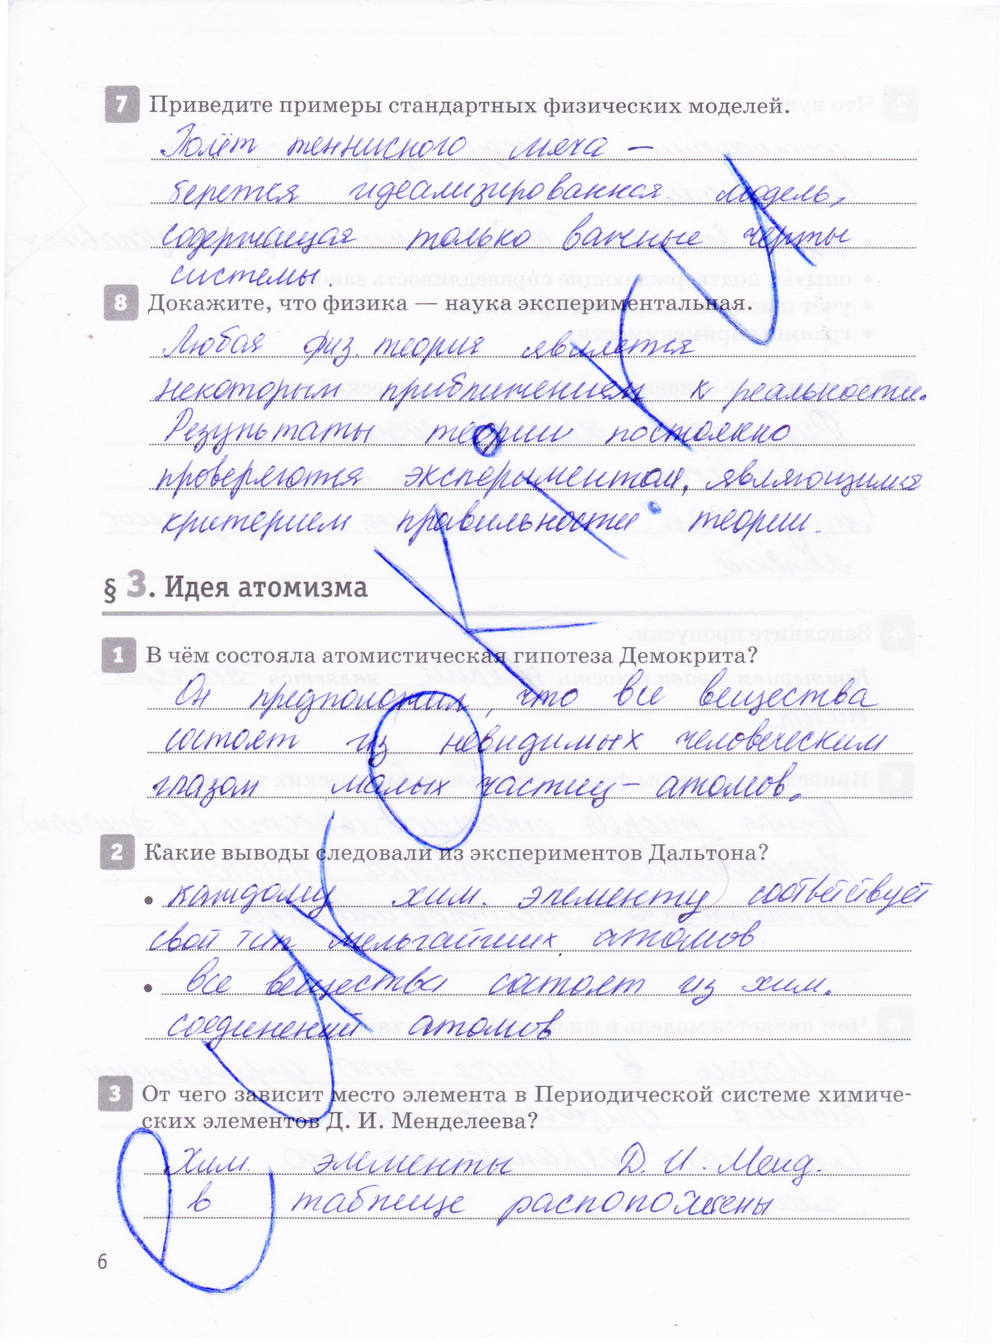 7 Приведите примеры стандартных физических моделей.
Полёт теннисного мяча –
берется идеализированная модель,
содержащая только важные черты
системы.
8 Докажите, что физика — наука экспериментальная.
Любая физ. теория является
некоторым приближением к реальности.
Результаты теории постоянно
проверяются экспериментом, являющимся
критерием правильности теории.
§ 3. Идея атомизма
1 В чём состояла атомистическая гипотеза Демокрита?
Он предположил, что все вещества
состоят из невидимых человеческим
глазом малых частиц – атомов.
2 Какие выводы следовали из экспериментов Дальтона?
• каждому хим. элементу соответствует
свой тип мельчайших атомов
• все вещества состоят из хим.
соединений атомов
3 От чего зависит место элемента в Периодической системе химиче-
ских элементов Д. И. Менделеева?
Хим. элементы Д. И. Менд.
в таблице расположены
6